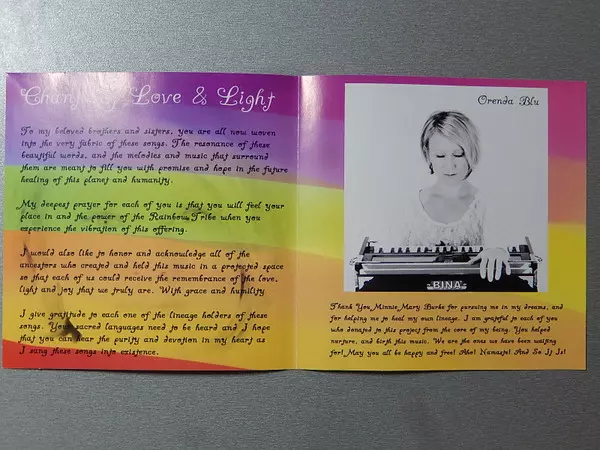 Chants of Love & Light
To my beloved brothers and sisters, you are all now woven
into the very fabric of these songs. The resonance of these
beautiful words, and the melodies and music that surround
them are meant to fill you with promise and hope in the future
healing of this planet and humanity.
My deepest prayer for each of you is that you will feel your
place in and the power of the Rainbow Tribe when you
experience the vibration of this offering.
I would also like to honor and acknowledge all of the
ancestors who created and held this music in a protected space
so that each of us could receive the remembrance of the love,
light and joy that we truly are. With grace and humility
I give gratitude to each one of the lineage holders of these
songs. Your sacred languages need to be heard and I hope
that you can hear the purity and devotion in my heart as
I sang these songs into existence.
Orenda Blu
BINA
Thank You Minnie Mary Burke for pursuing me in my dreams, and
for helping me to heal my own lineage. I am grateful to each of you
who donated to this project from the core of my being. You helped
nurture, and birth this music. We are the ones we have been waiting
for! May you all be happy and free! Aho! Namaste! And So It Is!